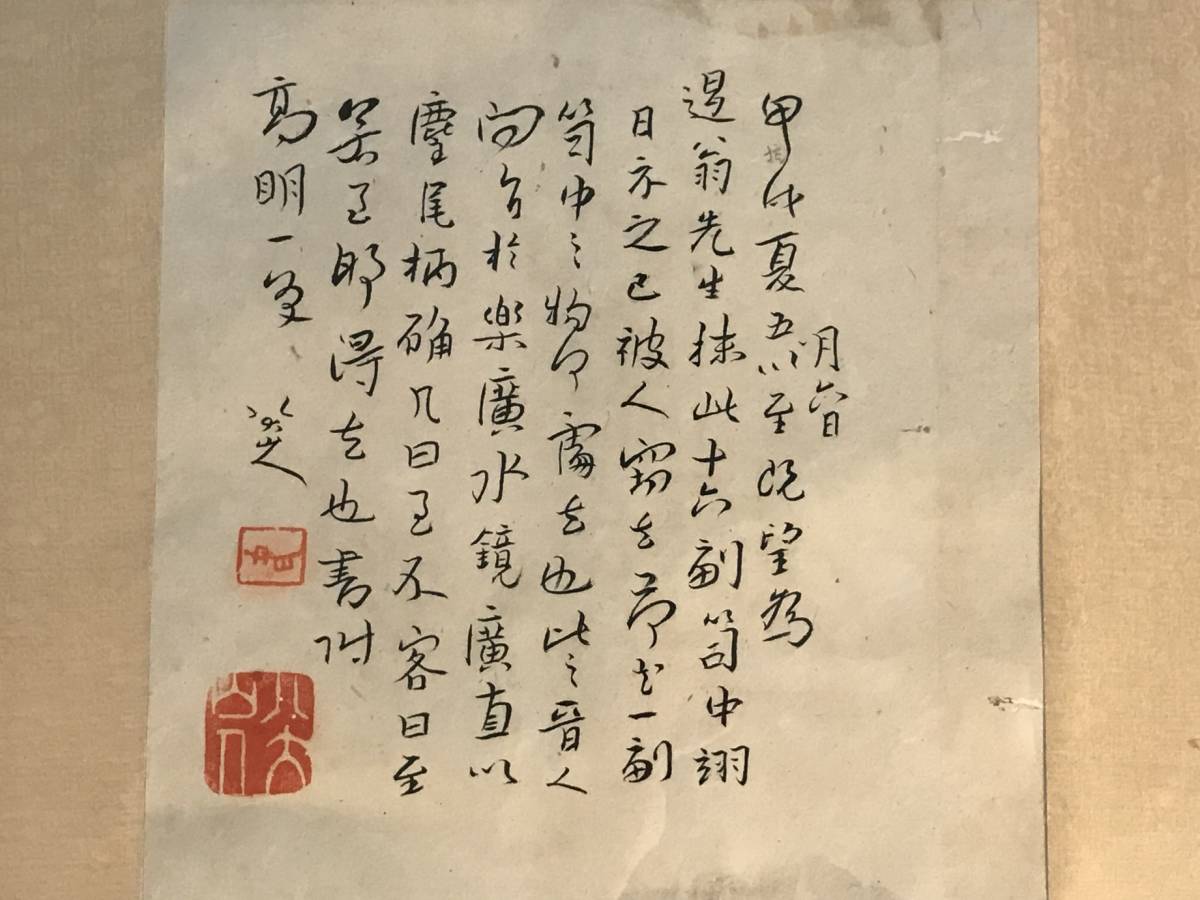 甲戌夏五以至既望為
月六日
退翁先生抹此十六副笥中翊
日示之已被人竊去一副
笥中之物何處去也比之晉人
問旨於樂廣水鏡廣直以
麈尾柄确几曰至不客曰至
若至那得去也書附
高明一笑
八大山人